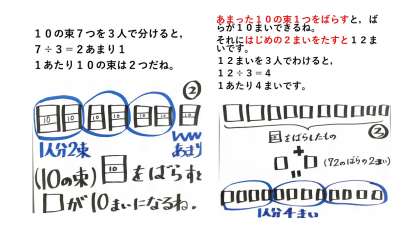 １０の束７つを３人で分けると,
７÷３＝２あまり１
１あたり１０の束は２つだね。
②
10 10 10 10 10 10 10
1人分2束
あまり
(10の束) 10 をばらすと
□が10まいになるね。
あまった１０の束１つをばらすと，ば
らが１０まいできるね。
それにはじめの２まいをたすと１２ま
いです。
１２まいを３人でわけると,
１２÷３＝４
１あたり４まいです。
をばらしたもの
②
+
(72のばらの2まい)
=
1人分4まい